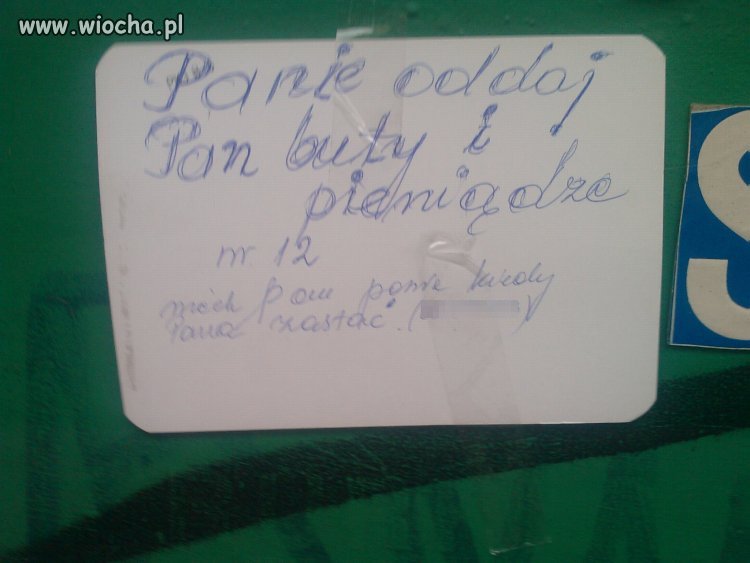 www.wiocha.pl
Panie oddaj
Pan buty i
pieniądze
nr 12
niech Pan powie kiedy
Pana zastać. ( )
S